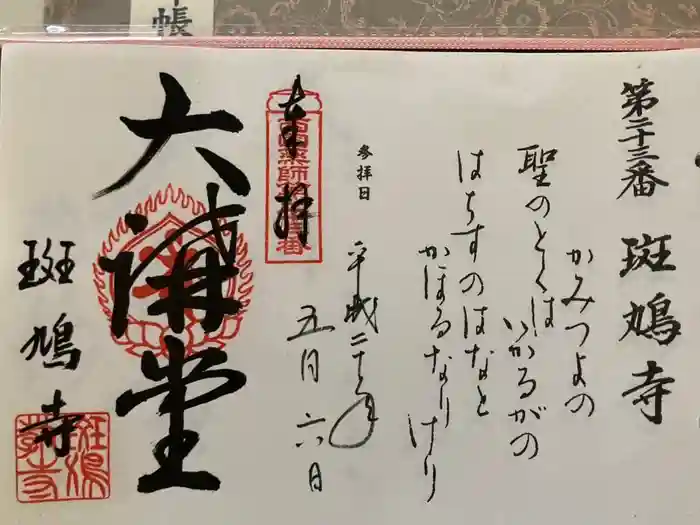 帳
第二十三番 斑鳩寺
かみつよの
聖のとくは いかるがの
はちすのはなと
かほるなりけり
参拝日
平成二十年
五月六日
奉拝
大講堂
斑鳩寺